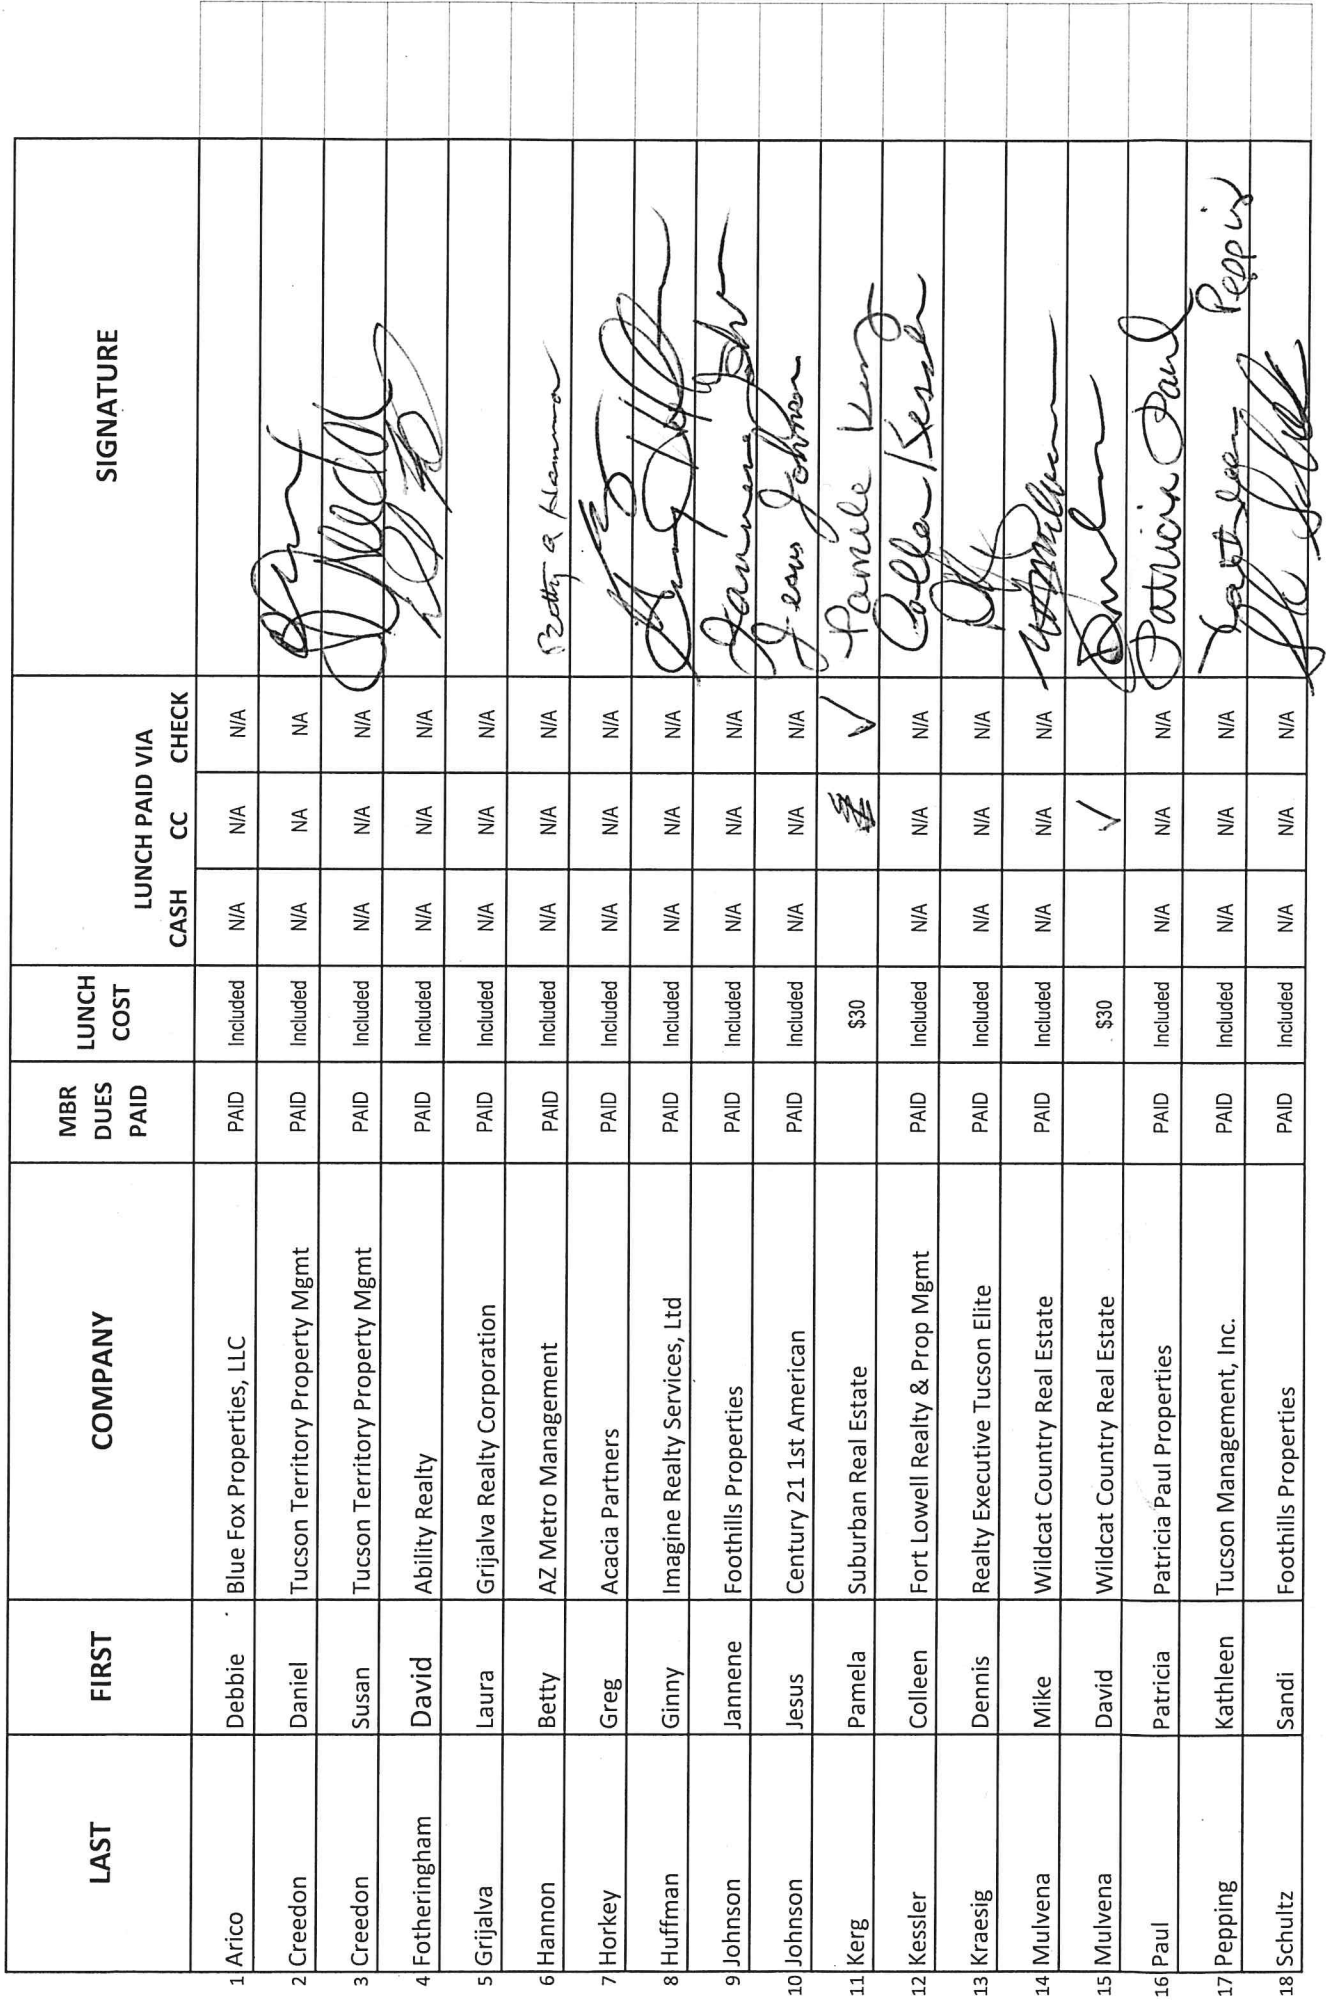 LAST FIRST COMPANY MBR DUES PAID LUNCH COST LUNCH PAID VIA CASH CC CHECK SIGNATURE
1 Arico Debbie Blue Fox Properties, LLC PAID Included N/A N/A N/A
2 Creedon Daniel Tucson Territory Property Mgmt PAID Included N/A NA NA
3 Creedon Susan Tucson Territory Property Mgmt PAID Included N/A N/A N/A
4 Fotheringham David Ability Realty PAID Included N/A N/A N/A
5 Grijalva Laura Grijalva Realty Corporation PAID Included N/A N/A N/A
6 Hannon Betty AZ Metro Management PAID Included N/A N/A N/A Betty a Hannon
7 Horkey Greg Acacia Partners PAID Included N/A N/A N/A
8 Huffman Ginny Imagine Realty Services, Ltd PAID Included N/A N/A N/A
9 Johnson Jannene Foothills Properties PAID Included N/A N/A N/A
10 Johnson Jesus Century 21 1st American PAID Included N/A N/A N/A Jesus Johnson
11 Kerg Pamela Suburban Real Estate $30 ✓ Pamela Kerg
12 Kessler Colleen Fort Lowell Realty & Prop Mgmt PAID Included N/A N/A N/A
13 Kraesig Dennis Realty Executive Tucson Elite PAID Included N/A N/A N/A
14 Mulvena Mike Wildcat Country Real Estate PAID Included N/A N/A N/A
15 Mulvena David Wildcat Country Real Estate $30 ✓
16 Paul Patricia Patricia Paul Properties PAID Included N/A N/A N/A Patricia Paul
17 Pepping Kathleen Tucson Management, Inc. PAID Included N/A N/A N/A Kathleen
18 Schultz Sandi Foothills Properties PAID Included N/A N/A N/A